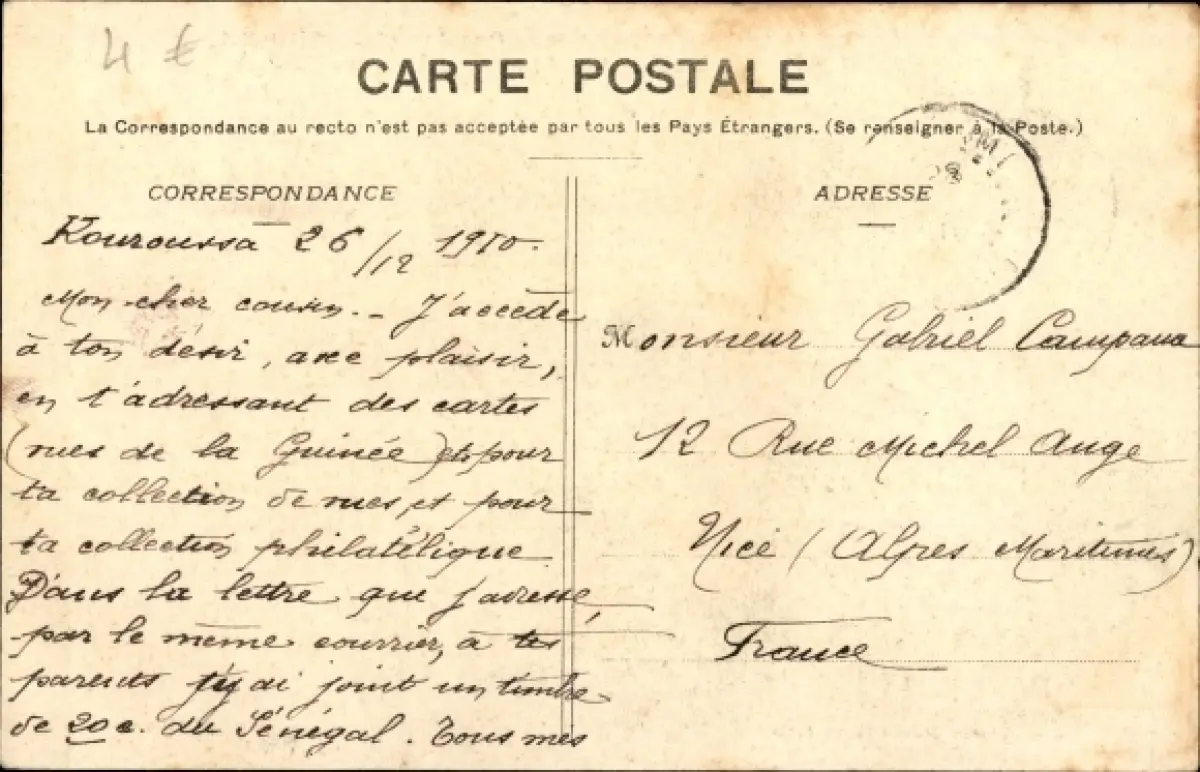 4 €
CARTE POSTALE
La Correspondance au recto n'est pas acceptée par tous les Pays Étrangers. (Se renseigner à la Poste.)
CORRESPONDANCE
Kouroussa 26/12 1910.
Mon cher cousin. - J'accède
à ton désir, avec plaisir,
en t'adressant des cartes
(vues de la Guinée) et pour
ta collection de vues, et pour
ta collection philatélique
Dans la lettre que j'adresse,
par le même courrier, à tes
parents j'y ai joint un timbre
de 20 c. du Sénégal. Tous mes
ADRESSE
Monsieur Gabriel Campana
12 Rue Michel Ange
Nice (Alpes Maritimes)
France